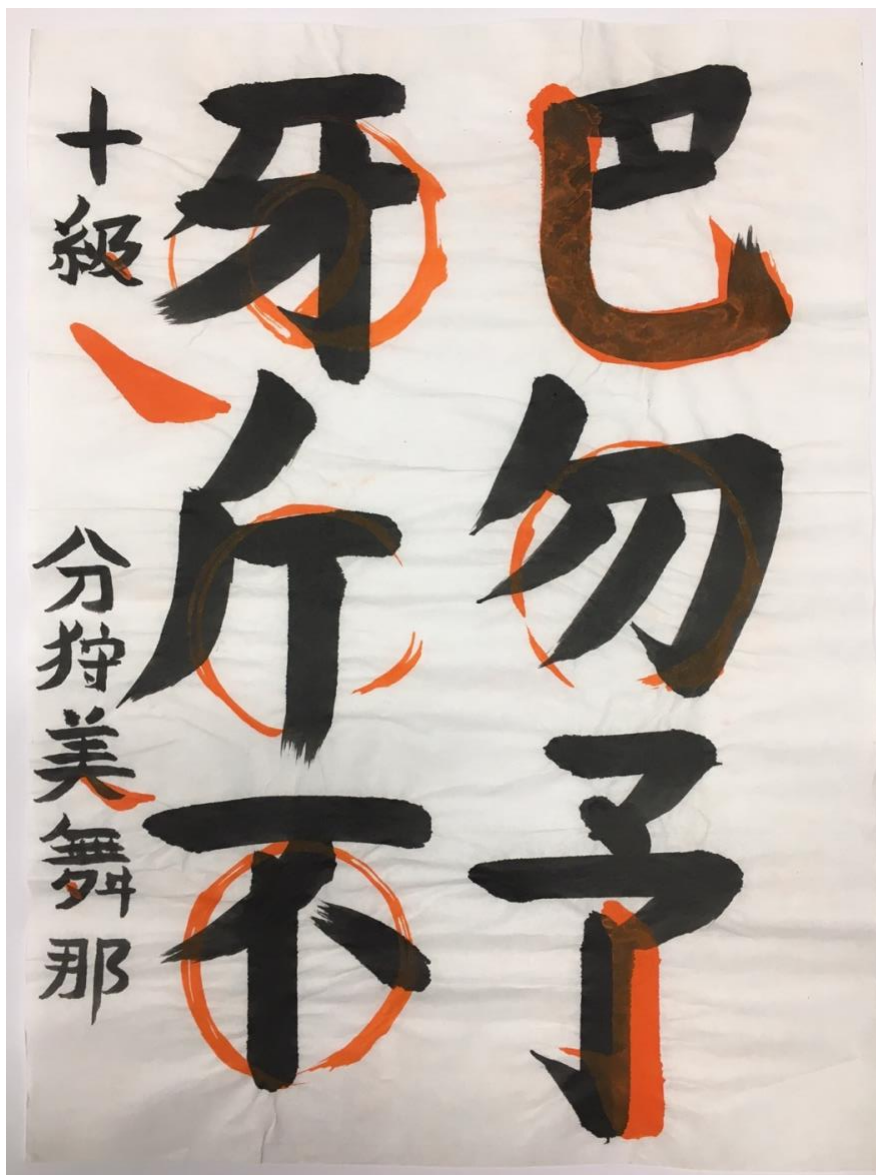 巴勿予
牙斤不
十級 分狩美舞那